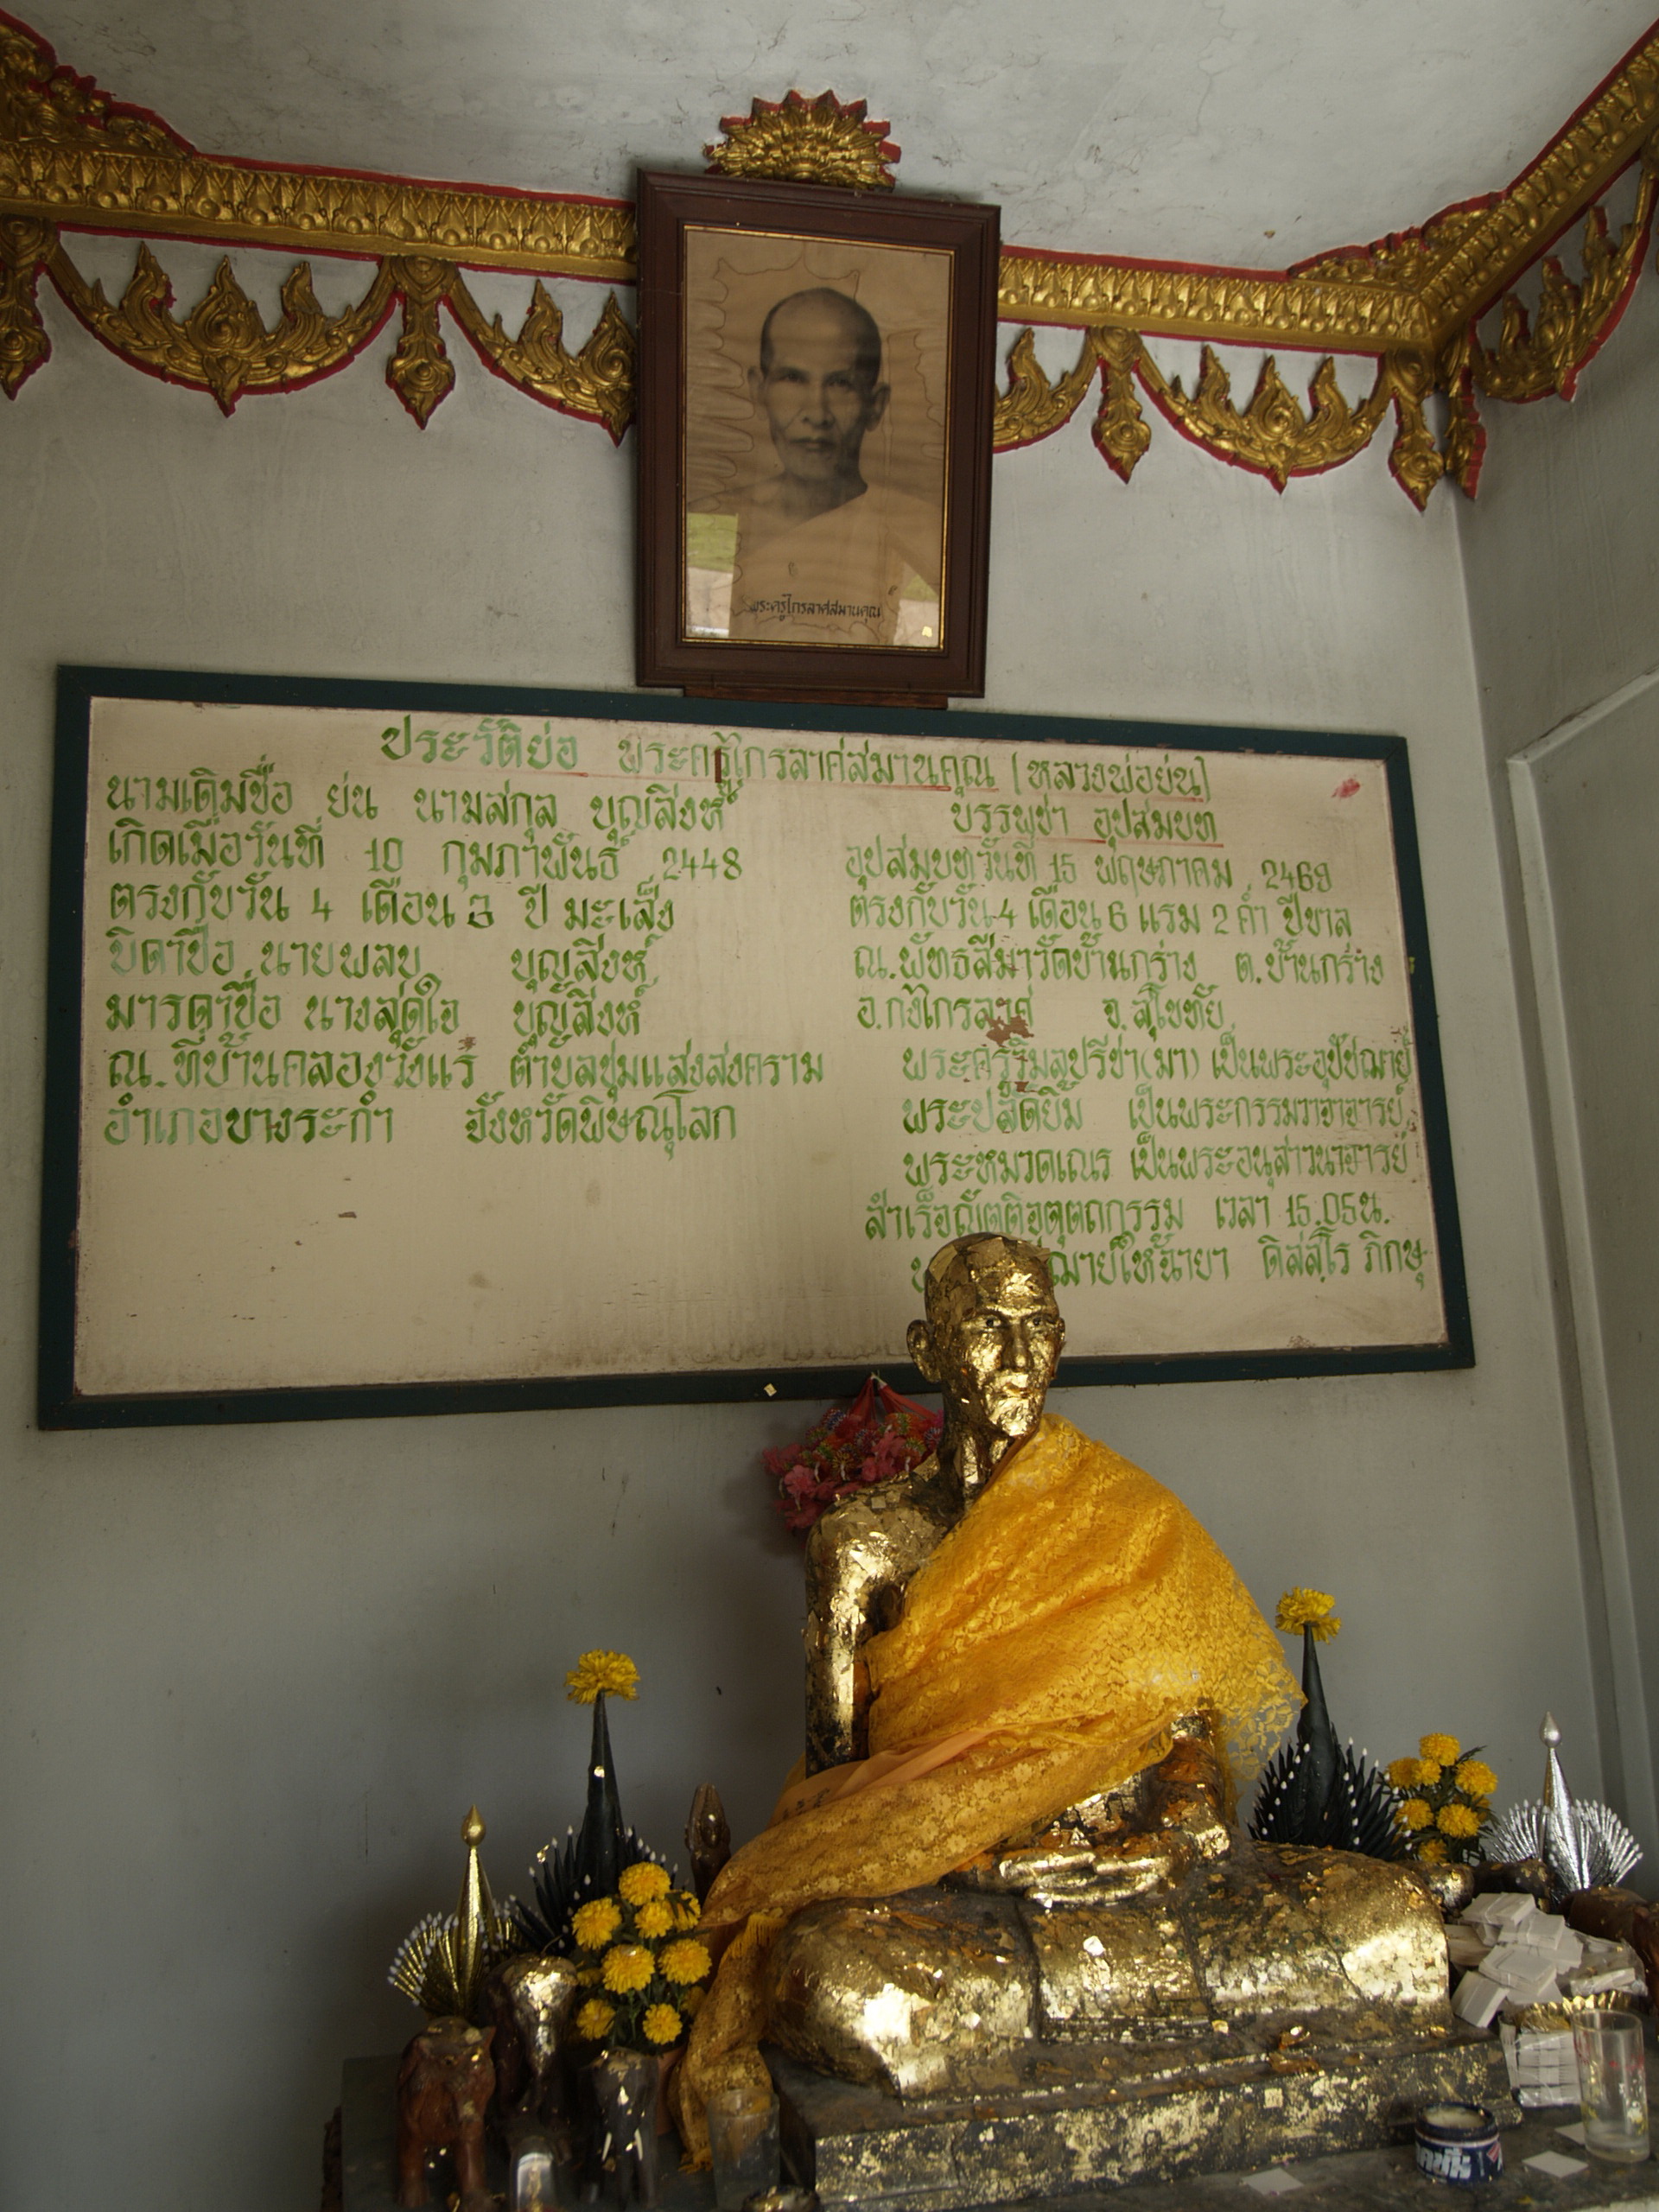 พระครูไกรลาศสมานคุณ
ประวัติย่อ พระครูไกรลาศสมานคุณ (หลวงพ่อย่น)
นามเดิมชื่อ ย่น นามสกุล บุญสิงห์
เกิดเมื่อวันที่ 10 กุมภาพันธ์ 2448
ตรงกับวัน 4 เดือน 3 ปี มะเส็ง
บิดาชื่อ นายพลบ บุญสิงห์
มารดาชื่อ นางสุดใจ บุญสิงห์
ณ.ที่บ้านคลองวังแร่ ตำบลชุมแสงสงคราม
อำเภอบางระกำ จังหวัดพิษณุโลก
บรรพชา อุปสมบท
อุปสมบทวันที่ 15 พฤษภาคม 2469
ตรงกับวัน 4 เดือน 6 แรม 2 ค่ำ ปีขาล
ณ.พัทธสีมาวัดบ้านกร่าง ต.บ้านกร่าง
อ.กงไกรลาศ จ.สุโขทัย
พระครูวิมลปรีชา(มา) เป็นพระอุปัชฌาย์
พระปลัดยิ้ม เป็นพระกรรมวาจาจารย์
พระหมวดเณร เป็นพระอนุสาวนาจารย์
สำเร็จญัตติจตุตถกรรม เวลา 15.05น.
ฌาย์ให้ฉายา ติสฺสโร ภิกษุ